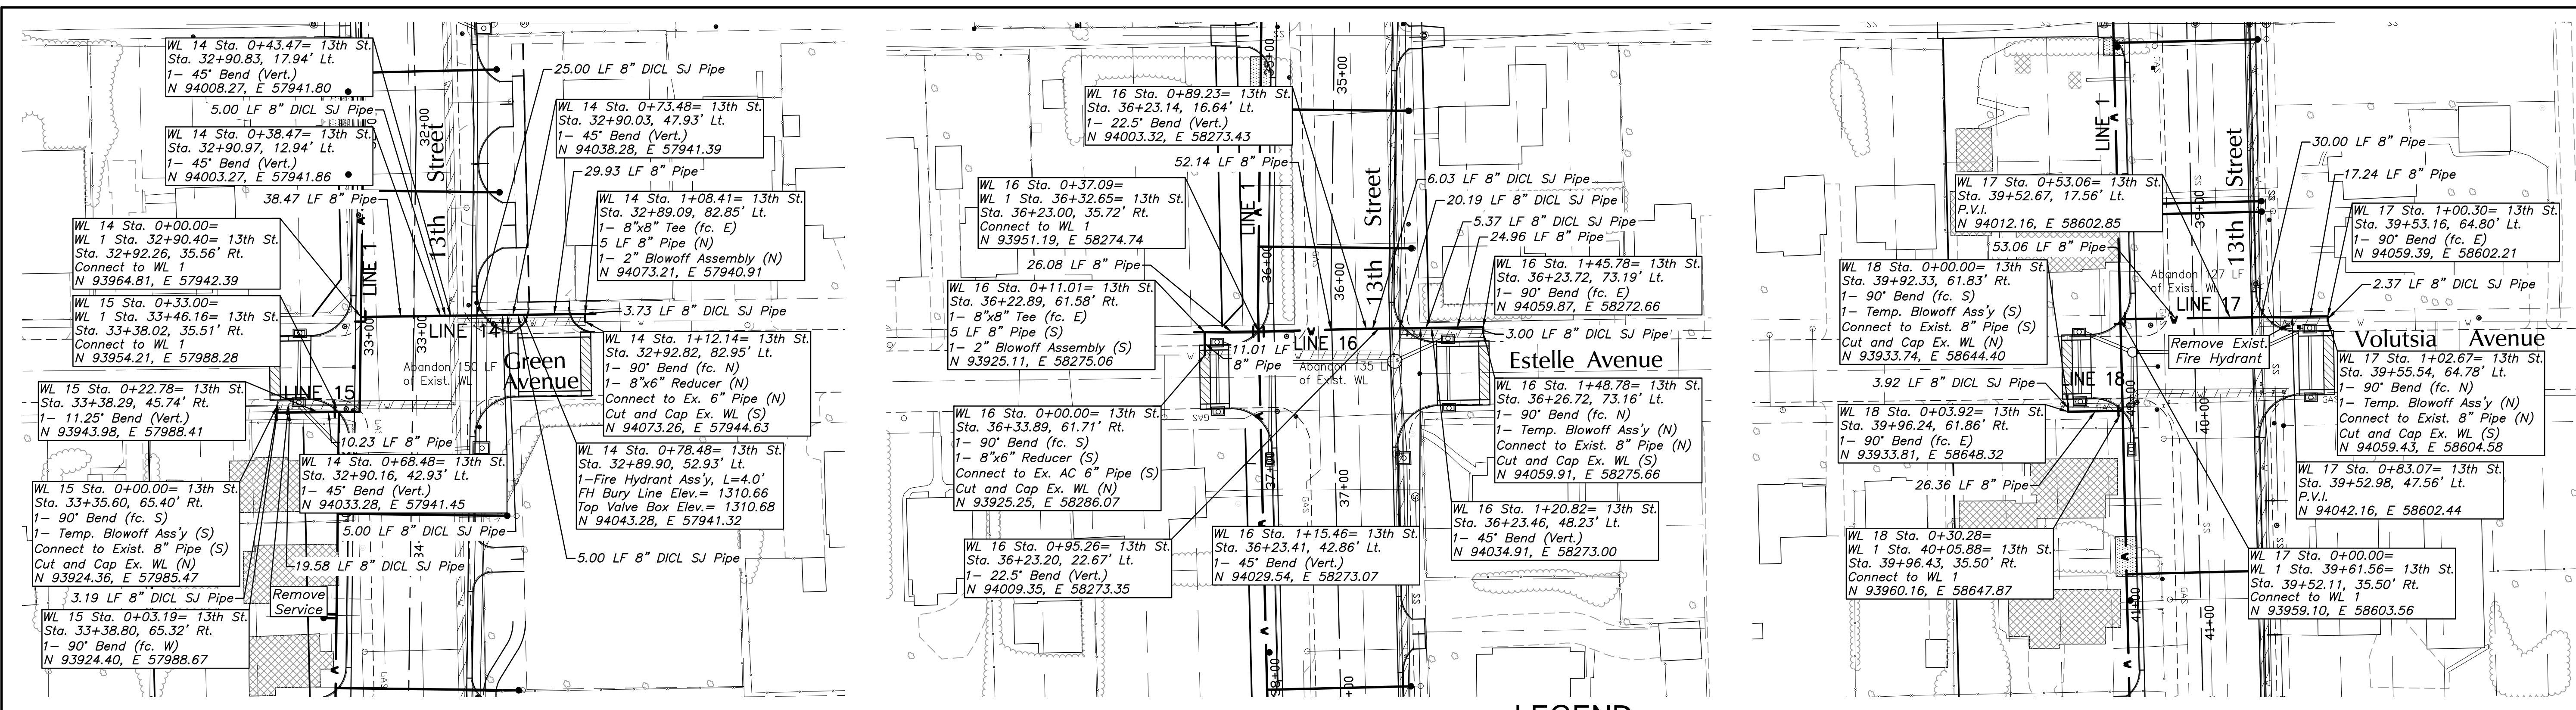 WL 14 Sta. 0+43.47= 13th St.
Sta. 32+90.83, 17.94' Lt.
1– 45° Bend (Vert.)
N 94008.27, E 57941.80
5.00 LF 8" DICL SJ Pipe
WL 14 Sta. 0+38.47= 13th St.
Sta. 32+90.97, 12.94' Lt.
1– 45° Bend (Vert.)
N 94003.27, E 57941.86
38.47 LF 8" Pipe
WL 14 Sta. 0+00.00=
WL 1 Sta. 32+90.40= 13th St.
Sta. 32+92.26, 35.56' Rt.
Connect to WL 1
N 93964.81, E 57942.39
WL 15 Sta. 0+33.00=
WL 1 Sta. 33+46.16= 13th St.
Sta. 33+38.02, 35.51' Rt.
Connect to WL 1
N 93954.21, E 57988.28
WL 15 Sta. 0+22.78= 13th St.
Sta. 33+38.29, 45.74' Rt.
1– 11.25° Bend (Vert.)
N 93943.98, E 57988.41
WL 15 Sta. 0+00.00= 13th St.
Sta. 33+35.60, 65.40' Rt.
1– 90° Bend (fc. S)
1– Temp. Blowoff Ass'y (S)
Connect to Exist. 8" Pipe (S)
Cut and Cap Ex. WL (N)
N 93924.36, E 57985.47
3.19 LF 8" DICL SJ Pipe
WL 15 Sta. 0+03.19= 13th St.
Sta. 33+38.80, 65.32' Rt.
1– 90° Bend (fc. W)
N 93924.40, E 57988.67
Remove
Service
19.58 LF 8" DICL SJ Pipe
10.23 LF 8" Pipe
WL 14 Sta. 0+68.48= 13th St.
Sta. 32+90.16, 42.93' Lt.
1– 45° Bend (Vert.)
N 94033.28, E 57941.45
5.00 LF 8" DICL SJ Pipe
LINE 1
LINE 14
LINE 15
13th Street
32+00
33+00
33+00
34
GAS
GAS
Abandon 150 LF
of Exist. WL
Green
Avenue
25.00 LF 8" DICL SJ Pipe
WL 14 Sta. 0+73.48= 13th St.
Sta. 32+90.03, 47.93' Lt.
1– 45° Bend (Vert.)
N 94038.28, E 57941.39
29.93 LF 8" Pipe
WL 14 Sta. 1+08.41= 13th St.
Sta. 32+89.09, 82.85' Lt.
1– 8"x8" Tee (fc. E)
5 LF 8" Pipe (N)
1– 2" Blowoff Assembly (N)
N 94073.21, E 57940.91
3.73 LF 8" DICL SJ Pipe
WL 14 Sta. 1+12.14= 13th St.
Sta. 32+92.82, 82.95' Lt.
1– 90° Bend (fc. N)
1– 8"x6" Reducer (N)
Connect to Ex. 6" Pipe (N)
Cut and Cap Ex. WL (S)
N 94073.26, E 57944.63
WL 14 Sta. 0+78.48= 13th St.
Sta. 32+89.90, 52.93' Lt.
1–Fire Hydrant Ass'y, L=4.0'
FH Bury Line Elev.= 1310.66
Top Valve Box Elev.= 1310.68
N 94043.28, E 57941.32
5.00 LF 8" DICL SJ Pipe
WL 16 Sta. 0+89.23= 13th St.
Sta. 36+23.14, 16.64' Lt.
1– 22.5° Bend (Vert.)
N 94003.32, E 58273.43
52.14 LF 8" Pipe
WL 16 Sta. 0+37.09=
WL 1 Sta. 36+32.65= 13th St.
Sta. 36+23.00, 35.72' Rt.
Connect to WL 1
N 93951.19, E 58274.74
26.08 LF 8" Pipe
WL 16 Sta. 0+11.01= 13th St.
Sta. 36+22.89, 61.58' Rt.
1– 8"x8" Tee (fc. E)
5 LF 8" Pipe (S)
1– 2" Blowoff Assembly (S)
N 93925.11, E 58275.06
11.01 LF
8" Pipe
WL 16 Sta. 0+00.00= 13th St.
Sta. 36+33.89, 61.71' Rt.
1– 90° Bend (fc. S)
1– 8"x6" Reducer (S)
Connect to Ex. AC 6" Pipe (S)
Cut and Cap Ex. WL (N)
N 93925.25, E 58286.07
WL 16 Sta. 0+95.26= 13th St.
Sta. 36+23.20, 22.67' Lt.
1– 22.5° Bend (Vert.)
N 94009.35, E 58273.35
WL 16 Sta. 1+15.46= 13th St.
Sta. 36+23.41, 42.86' Lt.
1– 45° Bend (Vert.)
N 94029.54, E 58273.07
LINE 1
LINE 16
13th Street
35+00
35+00
36+00
36+00
37+00
37+00
38+00
+00
GAS
GAS
SS
SS
Abandon 135 LF
of Exist. WL
6.03 LF 8" DICL SJ Pipe
20.19 LF 8" DICL SJ Pipe
5.37 LF 8" DICL SJ Pipe
24.96 LF 8" Pipe
WL 16 Sta. 1+45.78= 13th St.
Sta. 36+23.72, 73.19' Lt.
1– 90° Bend (fc. E)
N 94059.87, E 58272.66
3.00 LF 8" DICL SJ Pipe
Estelle Avenue
WL 16 Sta. 1+48.78= 13th St.
Sta. 36+26.72, 73.16' Lt.
1– 90° Bend (fc. N)
1– Temp. Blowoff Ass'y (N)
Connect to Exist. 8" Pipe (N)
Cut and Cap Ex. WL (S)
N 94059.91, E 58275.66
WL 16 Sta. 1+20.82= 13th St.
Sta. 36+23.46, 48.23' Lt.
1– 45° Bend (Vert.)
N 94034.91, E 58273.00
LEGEND
WL 17 Sta. 0+53.06= 13th St.
Sta. 39+52.67, 17.56' Lt.
P.V.I.
N 94012.16, E 58602.85
53.06 LF 8" Pipe
WL 18 Sta. 0+00.00= 13th St.
Sta. 39+92.33, 61.83' Rt.
1– 90° Bend (fc. S)
1– Temp. Blowoff Ass'y (S)
Connect to Exist. 8" Pipe (S)
Cut and Cap Ex. WL (N)
N 93933.74, E 58644.40
3.92 LF 8" DICL SJ Pipe
WL 18 Sta. 0+03.92= 13th St.
Sta. 39+96.24, 61.86' Rt.
1– 90° Bend (fc. E)
N 93933.81, E 58648.32
26.36 LF 8" Pipe
WL 18 Sta. 0+30.28=
WL 1 Sta. 40+05.88= 13th St.
Sta. 39+96.43, 35.50' Rt.
Connect to WL 1
N 93960.16, E 58647.87
LINE 1
LINE 17
LINE 18
13th Street
39+00
40+00
40+00
41+00
41+00
GAS
GAS
GAS
SS
SS
Abandon 127 LF
of Exist. WL
Remove Exist.
Fire Hydrant
30.00 LF 8" Pipe
17.24 LF 8" Pipe
WL 17 Sta. 1+00.30= 13th St.
Sta. 39+53.16, 64.80' Lt.
1– 90° Bend (fc. E)
N 94059.39, E 58602.21
2.37 LF 8" DICL SJ Pipe
Volutsia Avenue
WL 17 Sta. 1+02.67= 13th St.
Sta. 39+55.54, 64.78' Lt.
1– 90° Bend (fc. N)
1– Temp. Blowoff Ass'y (N)
Connect to Exist. 8" Pipe (N)
Cut and Cap Ex. WL (S)
N 94059.43, E 58604.58
WL 17 Sta. 0+83.07= 13th St.
Sta. 39+52.98, 47.56' Lt.
P.V.I.
N 94042.16, E 58602.44
WL 17 Sta. 0+00.00=
WL 1 Sta. 39+61.56= 13th St.
Sta. 39+52.11, 35.50' Rt.
Connect to WL 1
N 93959.10, E 58603.56